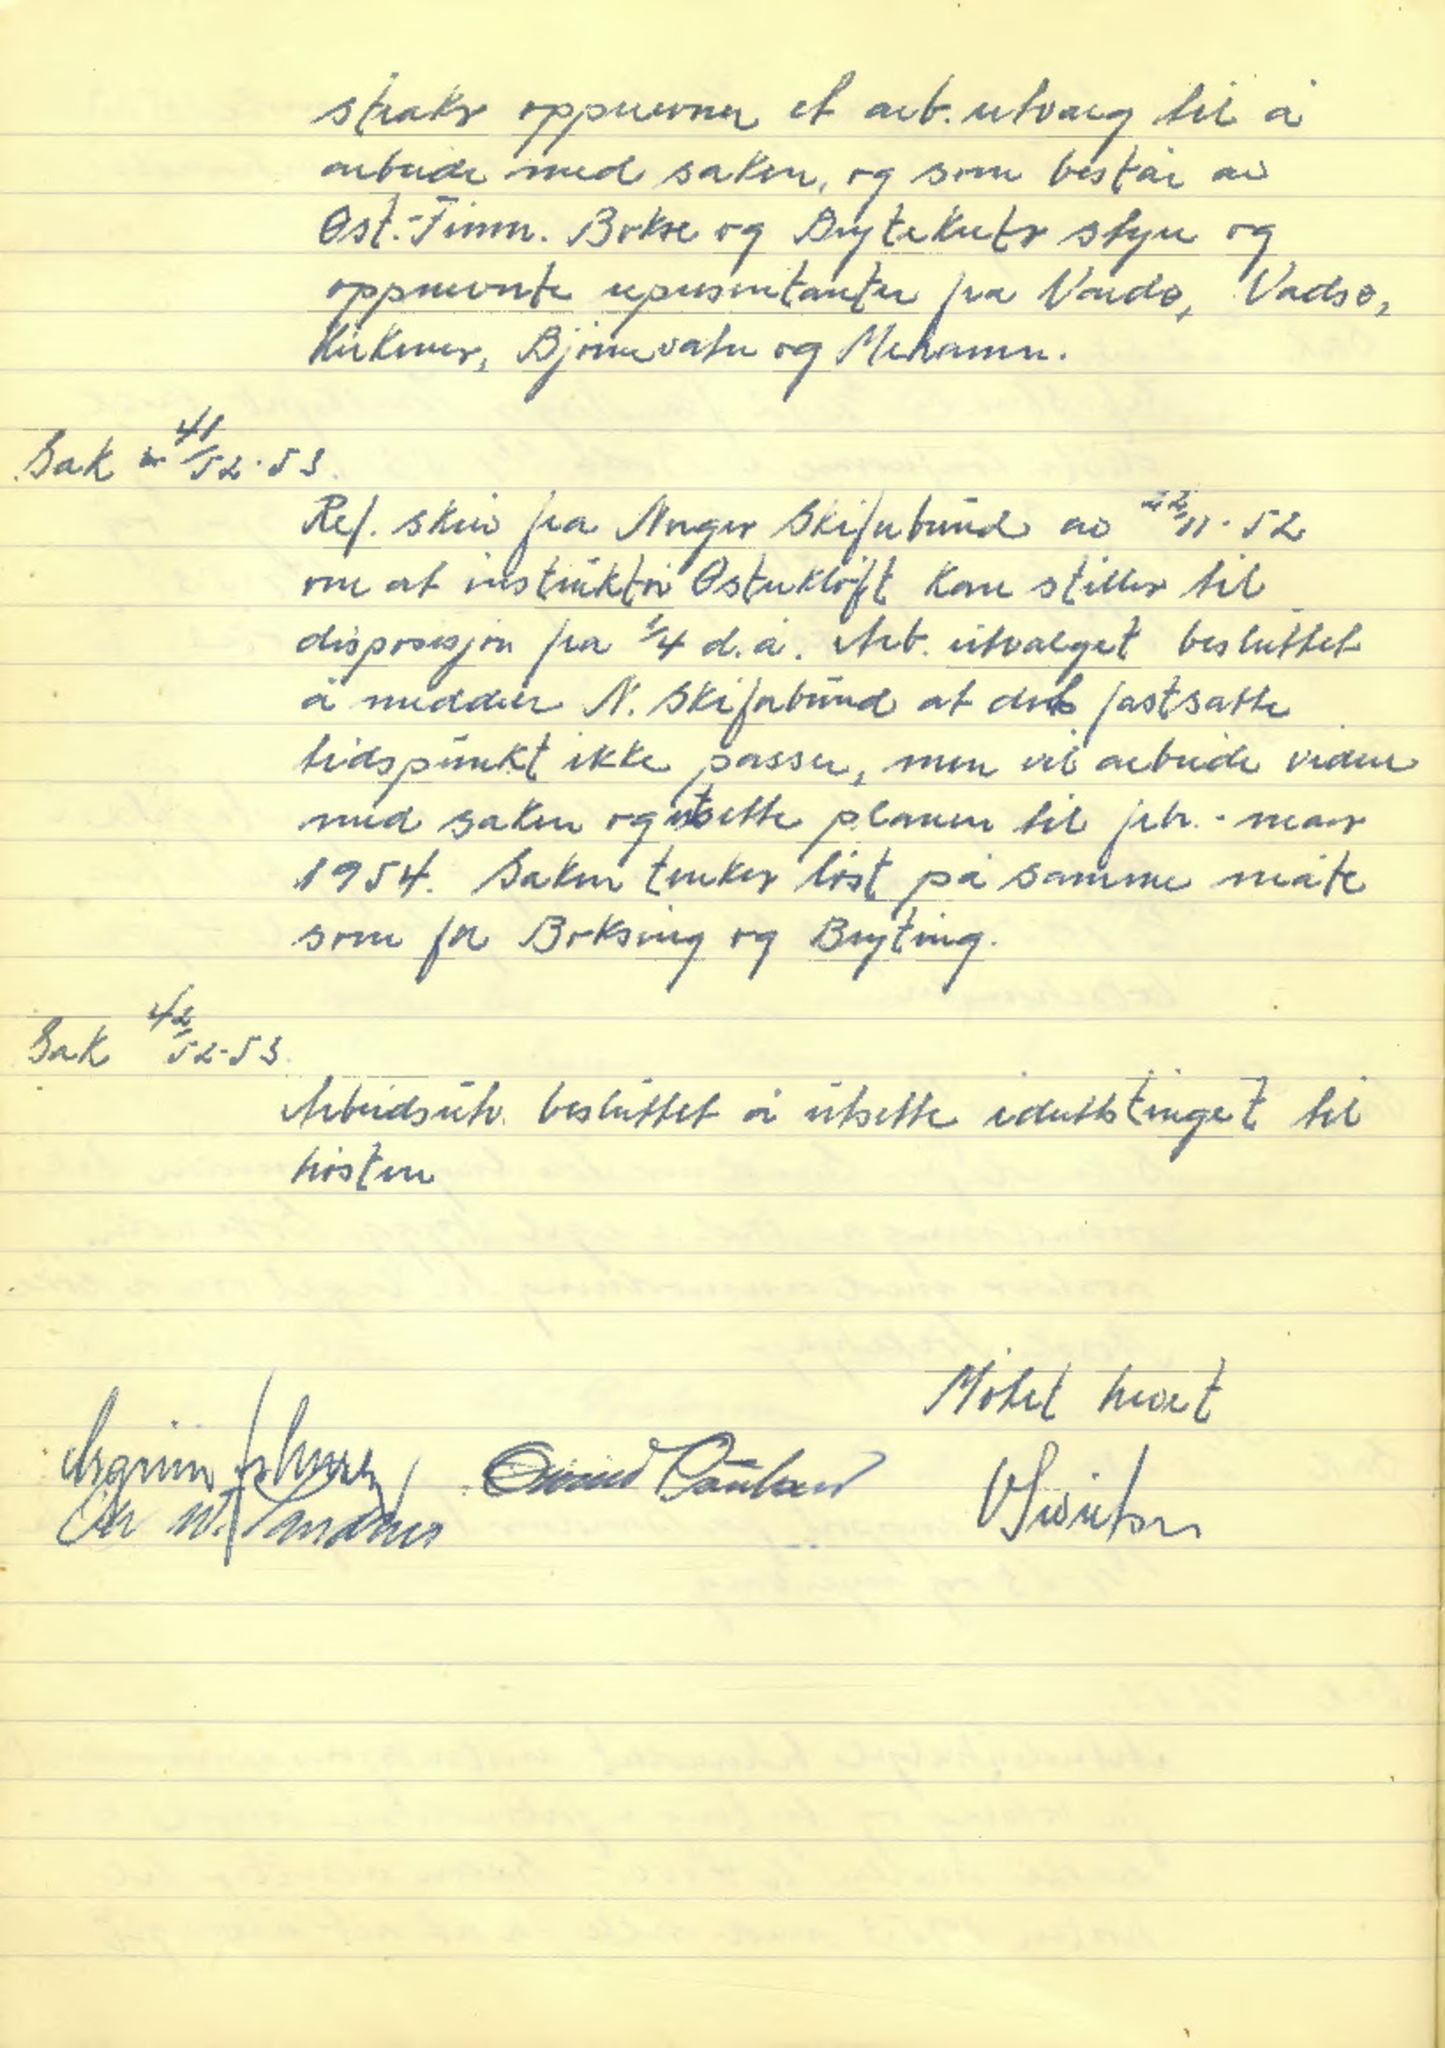 straks oppnevner et arb. utvalg til å
arbeide med saken, og som består av
Øst.-Finnm. Bokse og Brytekrets styre og
oppnevnte representanter fra Vardø, Vadsø,
Kirkenes, Bjørnevatn og Mehamn.
Sak nr 41/52-53.
Ref. skriv fra Norges Skiforbund av 22/11-52
om at instruktør Østerkløft kan stilles til
disposisjon fra 1/4 d.å. Arb. utvalget besluttet
å meddele N. Skiforbund at det fastsatte
tidspunkt ikke passer, men vil arbeide videre
med saken og utsette planen til febr. - mars
1954. Saken tenkes løst på samme måte
som for Boksing og Bryting.
Sak 42/52-53.
Arbeidsutv. besluttet å utsette idrettstinget til
høsten
Møtet hevet